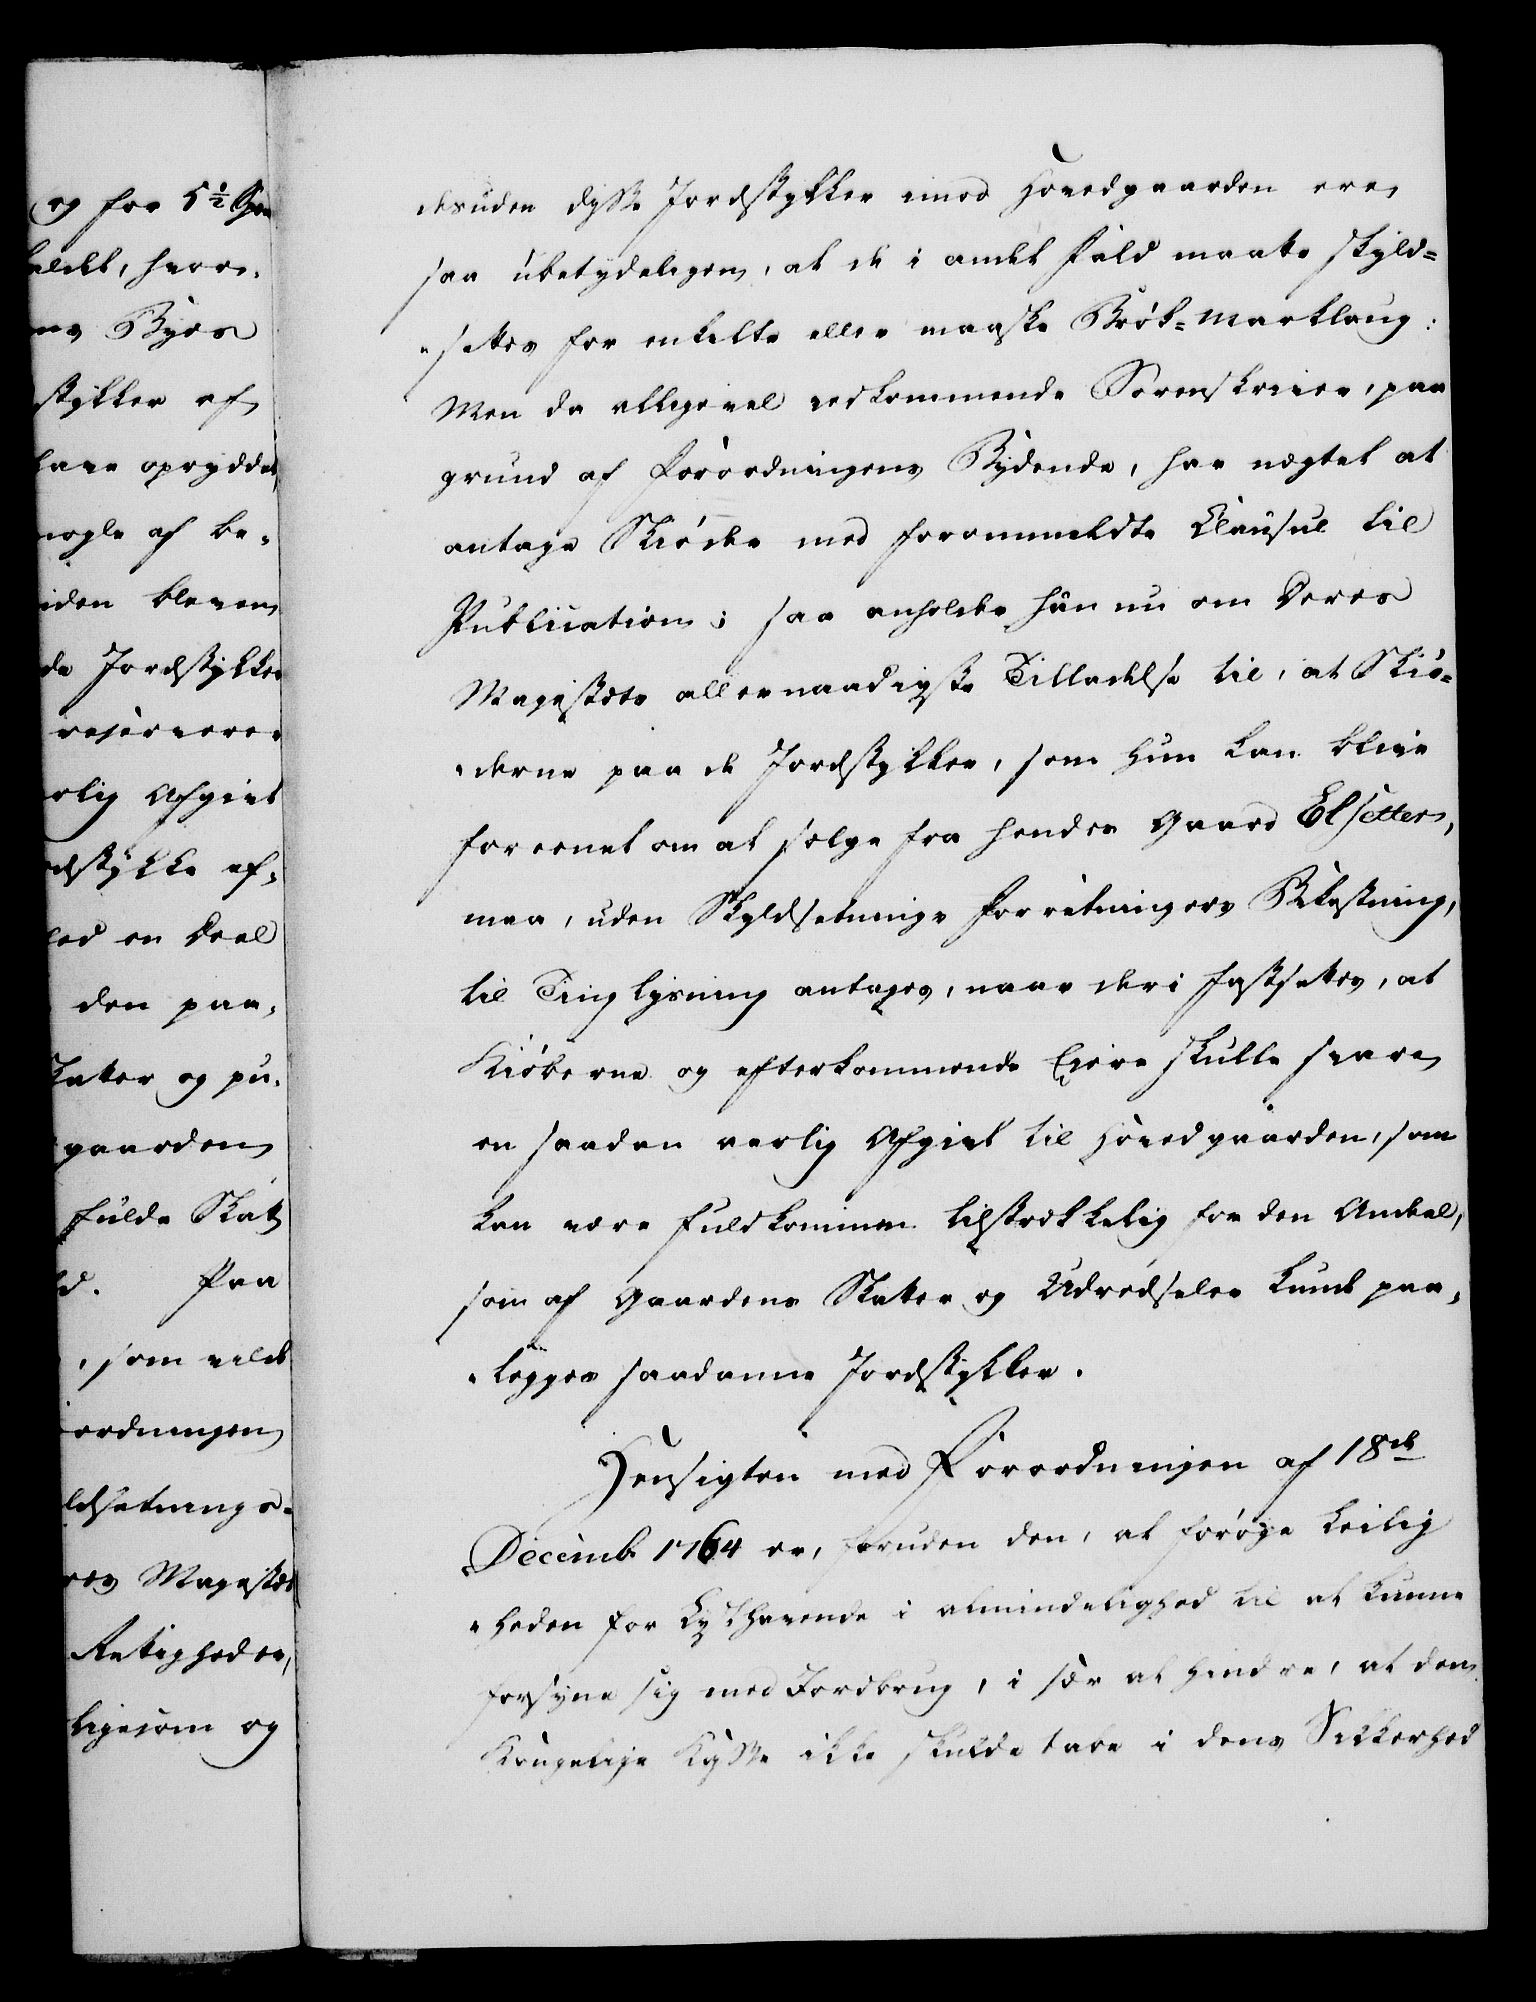 og for 5½ Spd
aldet, hvor-
ens Byes
stykker af
have opryddet,
nogle af be-
iden bleven
de Jordstykker
reservere-
rlig Afgivt
rdstykke af-
led en Deel
den paa-
Skatter og pu-
gaarden
fulde Skat
d. Paa
, som vilde
ordningen
ldsetnings-
res Majestæt
Rettigheder,
ligesom og
desuden disse Jordstykker imod Hovedgaarden ere
saa ubetydeligen, at de i andet Fald maatte skyld-
-settes for enkelte eller maaske Brøk-Marklaug:
Men da alligevel vedkommende Sorenskriver, paa
grund af Forordningens Bydende, har nægtet at
antage Skiøder med forommeldte Clausul til
Publication; saa anholder hun nu om Deres
Majestæts allernaadigste Tilladelse til, at Skiø-
-derne paa de Jordstykker, som hun kan blive
foreenet om at selge fra hendes Gaard Elsetter,
maa, uden Skyldsetnings Forretningers Vedtagning,
til Tinglysning antages, naar deri fastsettes, at
Kiøberne og efterkommende Eiere skulle svare
en saadan aarlig Afgivt til Hovedgaarden, som
kan være fuldkommen tilstrækkelig for den Andeel,
som af Gaardens Skatter og Udredseler kunde paa-
-legges saadanne Jordstykker.
Hensigten med Forordningen af 18de
Decemb. 1764 er, foruden den, at forøge Leilig
-heden for Lysthavende i almindelighed til at kunne
forsyne sig med Jordbrug, i sær at hindre, at den
Kongelige Kasse ikke skulde tabe i dens Sikkerhed